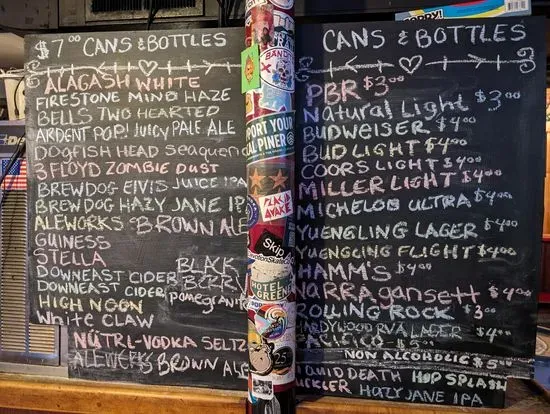 $7.00 CANS & BOTTLES
ALAGASH WHITE
FIRESTONE MIND HAZE
BELLS TWO HEARTED
ARDENT POP! JUICY PALE ALE
DOGFISH HEAD Seaquen
3 FLOYD ZOMBIE DUST
BREWDOG ELVIS JUICE IPA
BREWDOG HAZY JANE IP
ALEWORKS BROWN ALE
GUINESS
STELLA
DOWNEAST CIDER BLACK BERRY
DOWNEAST CIDER pomegranit
HIGH NOON
White CLAW
NÜTRL-VODKA SELTZ
ALEWORKS BROWN ALE
BANDI
PORT YOUR
AL PINER
PLAN 9
AWAKE
SKIP
HOTEL
GREENE
25
CANS & BOTTLES
PBR $3.00
Natural Light $3.00
BUDWEISER $4.00
BUD LIGHT $4.00
COORS LIGHT $4.00
MILLER LIGHT $4.00
MICHELOB ULTRA $4.00
YUENGLING LAGER $4.00
YUENGLING FLIGHT $4.00
HAMM'S $4.00
NARRAGANSETT $4.00
ROLLING ROCK $3.00
HARDYWOOD RVA LAGER $4.00
PACIFICO $5.00
NON ALCOHOLIC $5.00
QUID DEATH HOP SPLASH
UCKLER HAZY JANE IPA